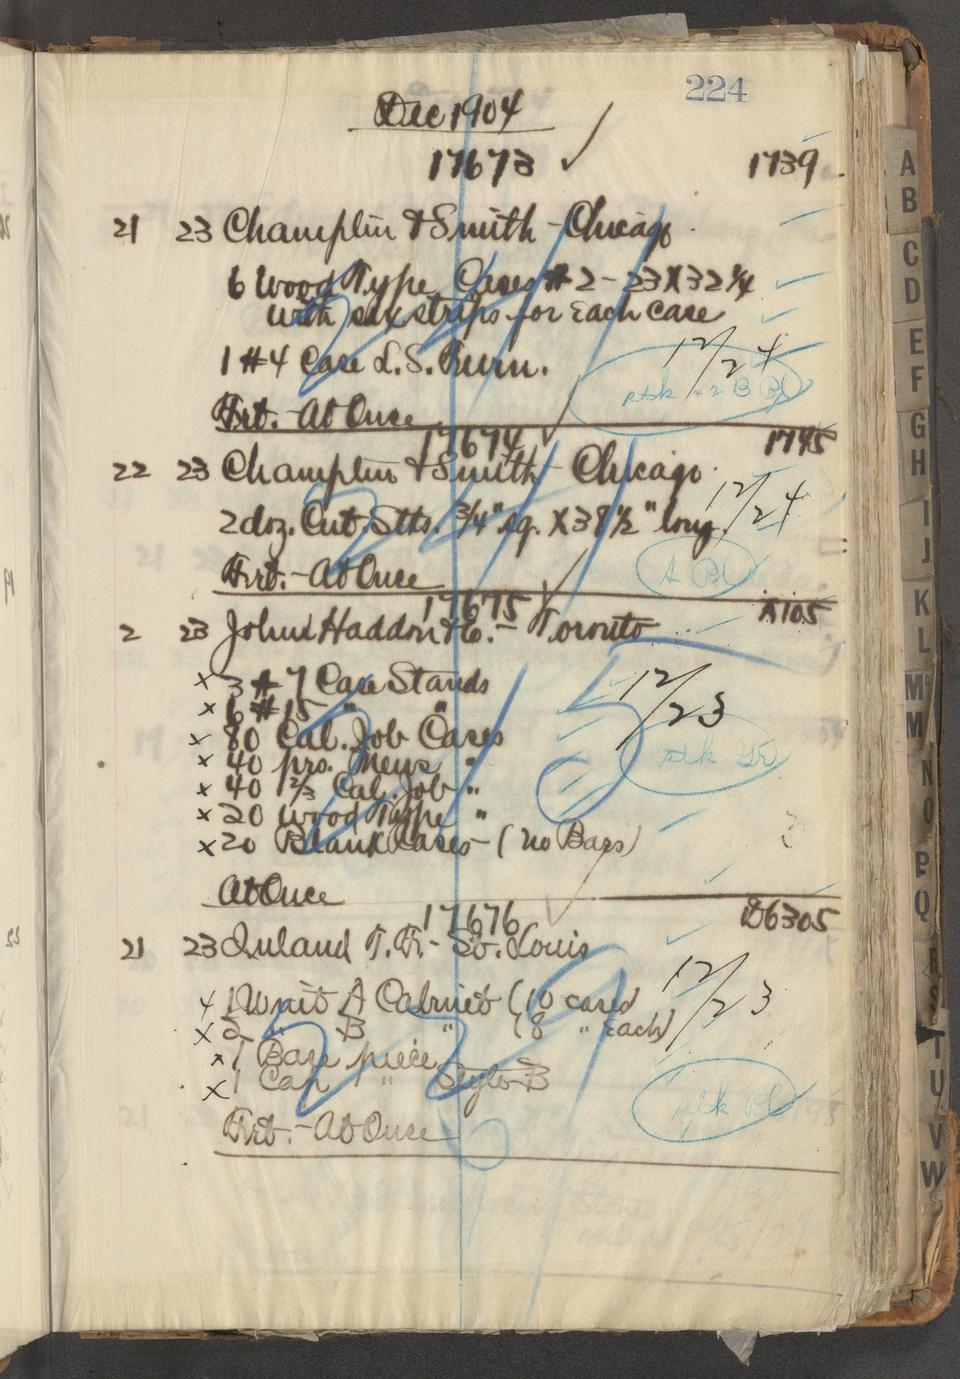 224
Dec 1904
17673 ✓ 1739
21 23 Champlin & Smith - Chicago
6 Wood Type Cases #2 - 23 X 32 1/4
with six strips for Each case
1 #4 Case L.S. Burn.
12/24
stk B Pl
Frt. - At Once
17674 1745
22 23 Champlin & Smith - Chicago
12/24
2 doz. Cut. Stks. 3/4" sq. X 38 1/2" long
A Pl
Frt. - At Once
17675 A105
2 23 John Haddon & Co. - Toronto
x 3 #7 Case Stands
12/23
x 6 #15 " "
x 80 Cal. Job Cases
x 40 pro. News "
stk
x 40 2/3 Cal. Job "
x 20 Wood Type "
x 20 Blank Cases - (no Bars)
At Once
17676 D6305
21 23 Inland T. F. - St. Louis
12/23
x 1 Unit A Cabinet (10 cases)
x 2 " B " (8 " Each)
x 1 Base piece
x 1 Cap " Style B
stk Pl
Frt. - At Once
A
B
C
D
E
F
G
H
I
J
K
L
Mc
M
N
O
P
Q
R
S
T
U
V
W